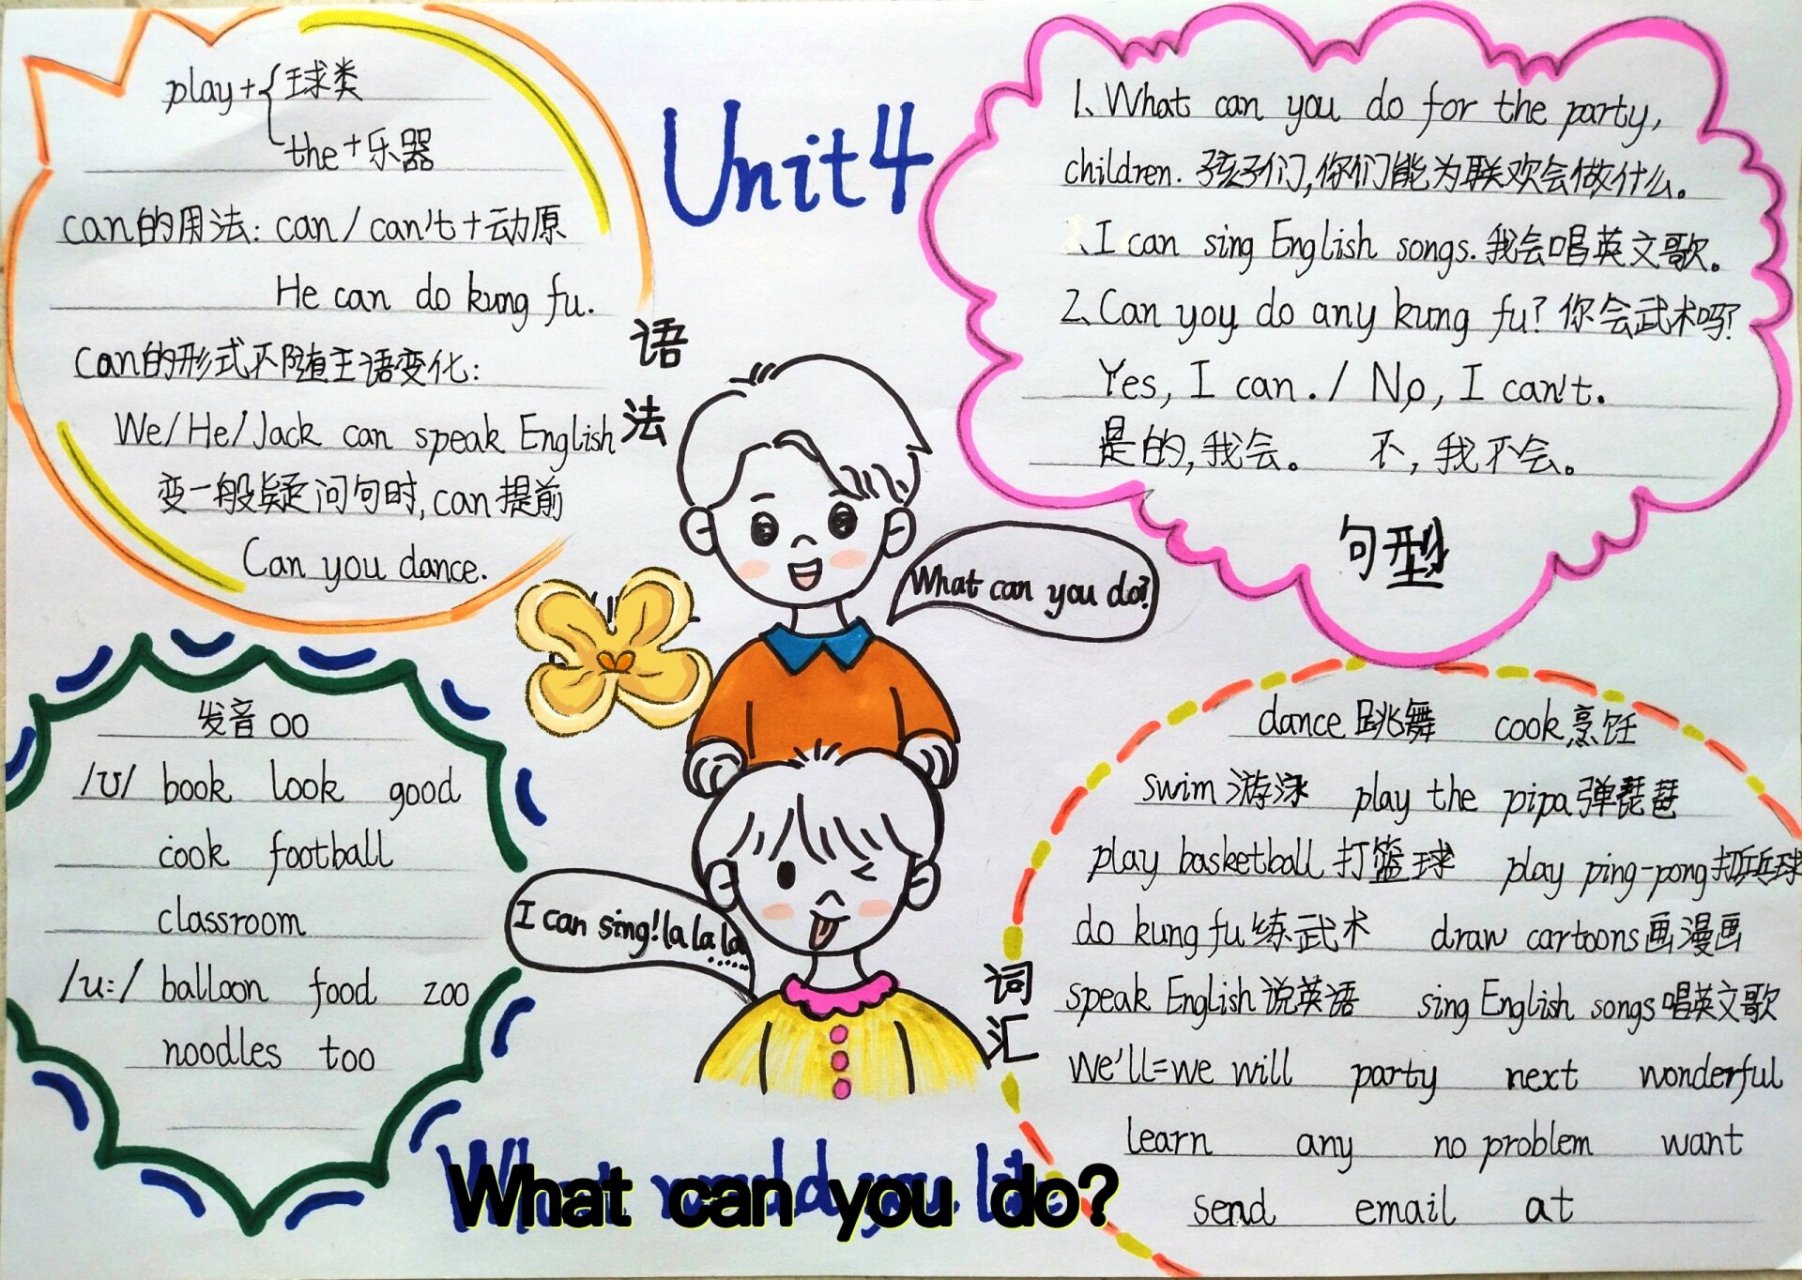 Unit4
play+{球类
the+乐器
can的用法: can/can't+动原
He can do kung fu.
can的形式不随主语变化:
We/He/Jack can speak English
变一般疑问句时,can提前
Can you dance.
语法
1、What can you do for the party,
children. 孩子们,你们能为联欢会做什么。
、I can sing English songs.我会唱英文歌。
2、Can yoy do any kung fu?你会武术吗?
Yes, I can./ No, I can't.
是的,我会。 不,我不会。
句型
What can you do?
I can sing!la la la......
发音 oo
/ʊ/ book look good
cook football
classroom
/u:/ balloon food zoo
noodles too
dance跳舞 cook烹饪
swim游泳 play the pipa弹琵琶
play basketball打篮球 play ping-pong打乒乓球
do kung fu练武术 draw cartoons画漫画
speak English说英语 sing English songs唱英文歌
we'll=we will party next wonderful
learn any no problem want
send email at
词汇
What can you do?